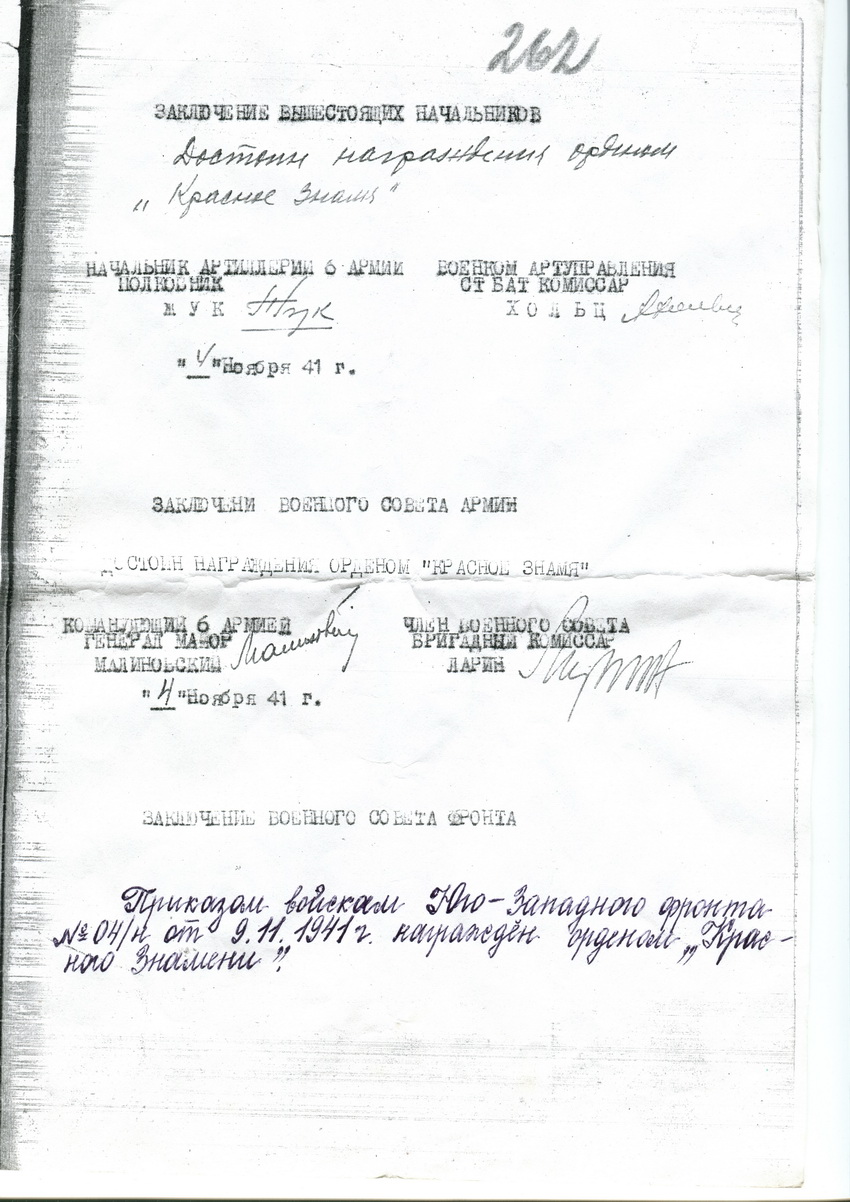 262
ЗАКЛЮЧЕНИЕ ВЫШЕСТОЯЩИХ НАЧАЛЬНИКОВ
Достоин награждения орденом
„Красное Знамя"
НАЧАЛЬНИК АРТИЛЛЕРИИ 6 АРМИИ ВОЕНКОМ АРТУПРАВЛЕНИЯ
ПОЛКОВНИК СТ БАТ КОМИССАР
ЖУК Жук ХОЛЬЦ
"4"Ноября 41 г.
ЗАКЛЮЧЕНИ ВОЕННОГО СОВЕТА АРМИИ
ДОСТОИН НАГРАЖДЕНИЯ ОРДЕНОМ "КРАСНОЕ ЗНАМЯ"
КОМАНДУЮЩИЙ 6 АРМИЕЙ ЧЛЕН ВОЕННОГО СОВЕТА
ГЕНЕРАЛ МАЙОР БРИГАДНЫЙ КОМИССАР
МАЛИНОВСКИЙ ЛАРИН
"4"Ноября 41 г.
ЗАКЛЮЧЕНИЕ ВОЕННОГО СОВЕТА ФРОНТА
Приказом войскам Юго-Западного фронта
№ 04/н от 9.11.1941 г. награждён орденом „Крас-
ного Знамени".